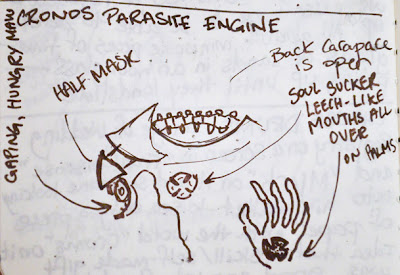 CRONOS PARASITE ENGINE
GAPING, HUNGRY MAW
HALF MASK
BACK CARAPACE
is open
SOUL SUCKER
LEECH-LIKE
MOUTHS ALL
OVER
ON PALMS